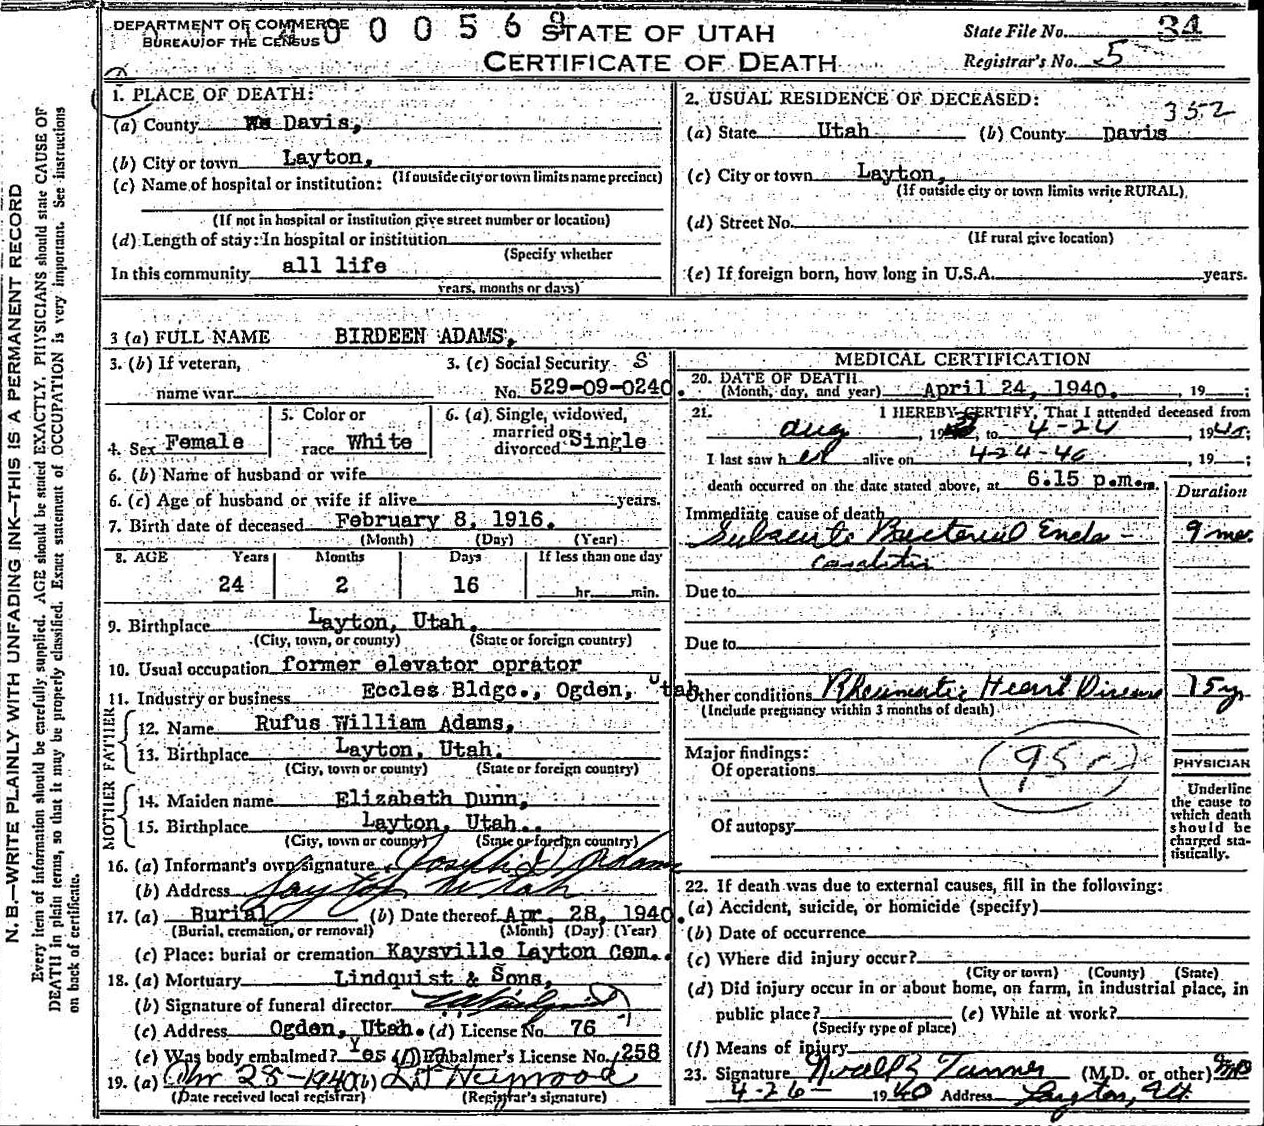 DEPARTMENT OF COMMERCE
BUREAU OF THE CENSUS
0 0 5 6 9
STATE OF UTAH
CERTIFICATE OF DEATH
State File No. 34
Registrar's No. 5
N. B.—WRITE PLAINLY WITH UNFADING INK—THIS IS A PERMANENT RECORD
Every item of information should be carefully supplied. AGE should be stated EXACTLY. PHYSICIANS should state CAUSE OF
DEATH in plain terms, so that it may be properly classified. Exact statement of OCCUPATION is very important. See instructions
on back of certificate.
1. PLACE OF DEATH:
(a) County Davis,
(b) City or town Layton,
(If outside city or town limits name precinct)
(c) Name of hospital or institution:
(If not in hospital or institution give street number or location)
(d) Length of stay: In hospital or institution
(Specify whether
In this community all life
years, months or days)
2. USUAL RESIDENCE OF DECEASED:
352
(a) State Utah (b) County Davis
(c) City or town Layton,
(If outside city or town limits write RURAL)
(d) Street No.
(If rural give location)
(e) If foreign born, how long in U.S.A. years.
3 (a) FULL NAME BIRDEEN ADAMS,
3. (b) If veteran, name war
3. (c) Social Security S
No. 529-09-0240.
4. Sex Female
5. Color or race White
6. (a) Single, widowed, married or divorced Single
6. (b) Name of husband or wife
6. (c) Age of husband or wife if alive years.
7. Birth date of deceased February 8, 1916.
(Month) (Day) (Year)
8. AGE Years Months Days If less than one day
24 2 16 hr. min.
9. Birthplace Layton, Utah.
(City, town, or county) (State or foreign country)
10. Usual occupation former elevator oprator
11. Industry or business Eccles Bldgc., Ogden, Utah
FATHER
12. Name Rufus William Adams,
13. Birthplace Layton, Utah.
(City, town or county) (State or foreign country)
MOTHER
14. Maiden name Elizabeth Dunn,
15. Birthplace Layton, Utah..
(City, town or county) (State or foreign country)
16. (a) Informant's own signature Joseph Adams
(b) Address Layton Utah
17. (a) Burial (b) Date thereof Apr. 28, 1940.
(Burial, cremation, or removal) (Month) (Day) (Year)
(c) Place: burial or cremation Kaysville Layton Cem..
18. (a) Mortuary Lindquist & Sons,
(b) Signature of funeral director
(c) Address Ogden, Utah. (d) License No. 76
(e) Was body embalmed? Yes (f) Embalmer's License No. 258
19. (a) 28-1940 (b)
(Date received local registrar) (Registrar's signature)
MEDICAL CERTIFICATION
20. DATE OF DEATH
(Month, day, and year) April 24, 1940. , 19 ;
21. I HEREBY CERTIFY, That I attended deceased from
aug , 19 , to 4-24 , 1940;
I last saw her alive on 4-24-40 , 19 ;
death occurred on the date stated above, at 6.15 p.m.m.
Duration
Immediate cause of death
Subacute Bacterial Endo- 9 mo.
carditis
Due to
Due to
Other conditions Rheumatic Heart Disease 15 yr
(Include pregnancy within 3 months of death)
Major findings:
Of operations
Of autopsy
PHYSICIAN
Underline
the cause to
which death
should be
charged sta-
tistically.
22. If death was due to external causes, fill in the following:
(a) Accident, suicide, or homicide (specify)
(b) Date of occurrence
(c) Where did injury occur?
(City or town) (County) (State)
(d) Did injury occur in or about home, on farm, in industrial place, in
public place? (e) While at work?
(Specify type of place)
(f) Means of injury
23. Signature Tanner (M.D. or other) MD
4-26- 1940 Address Layton, Ut.